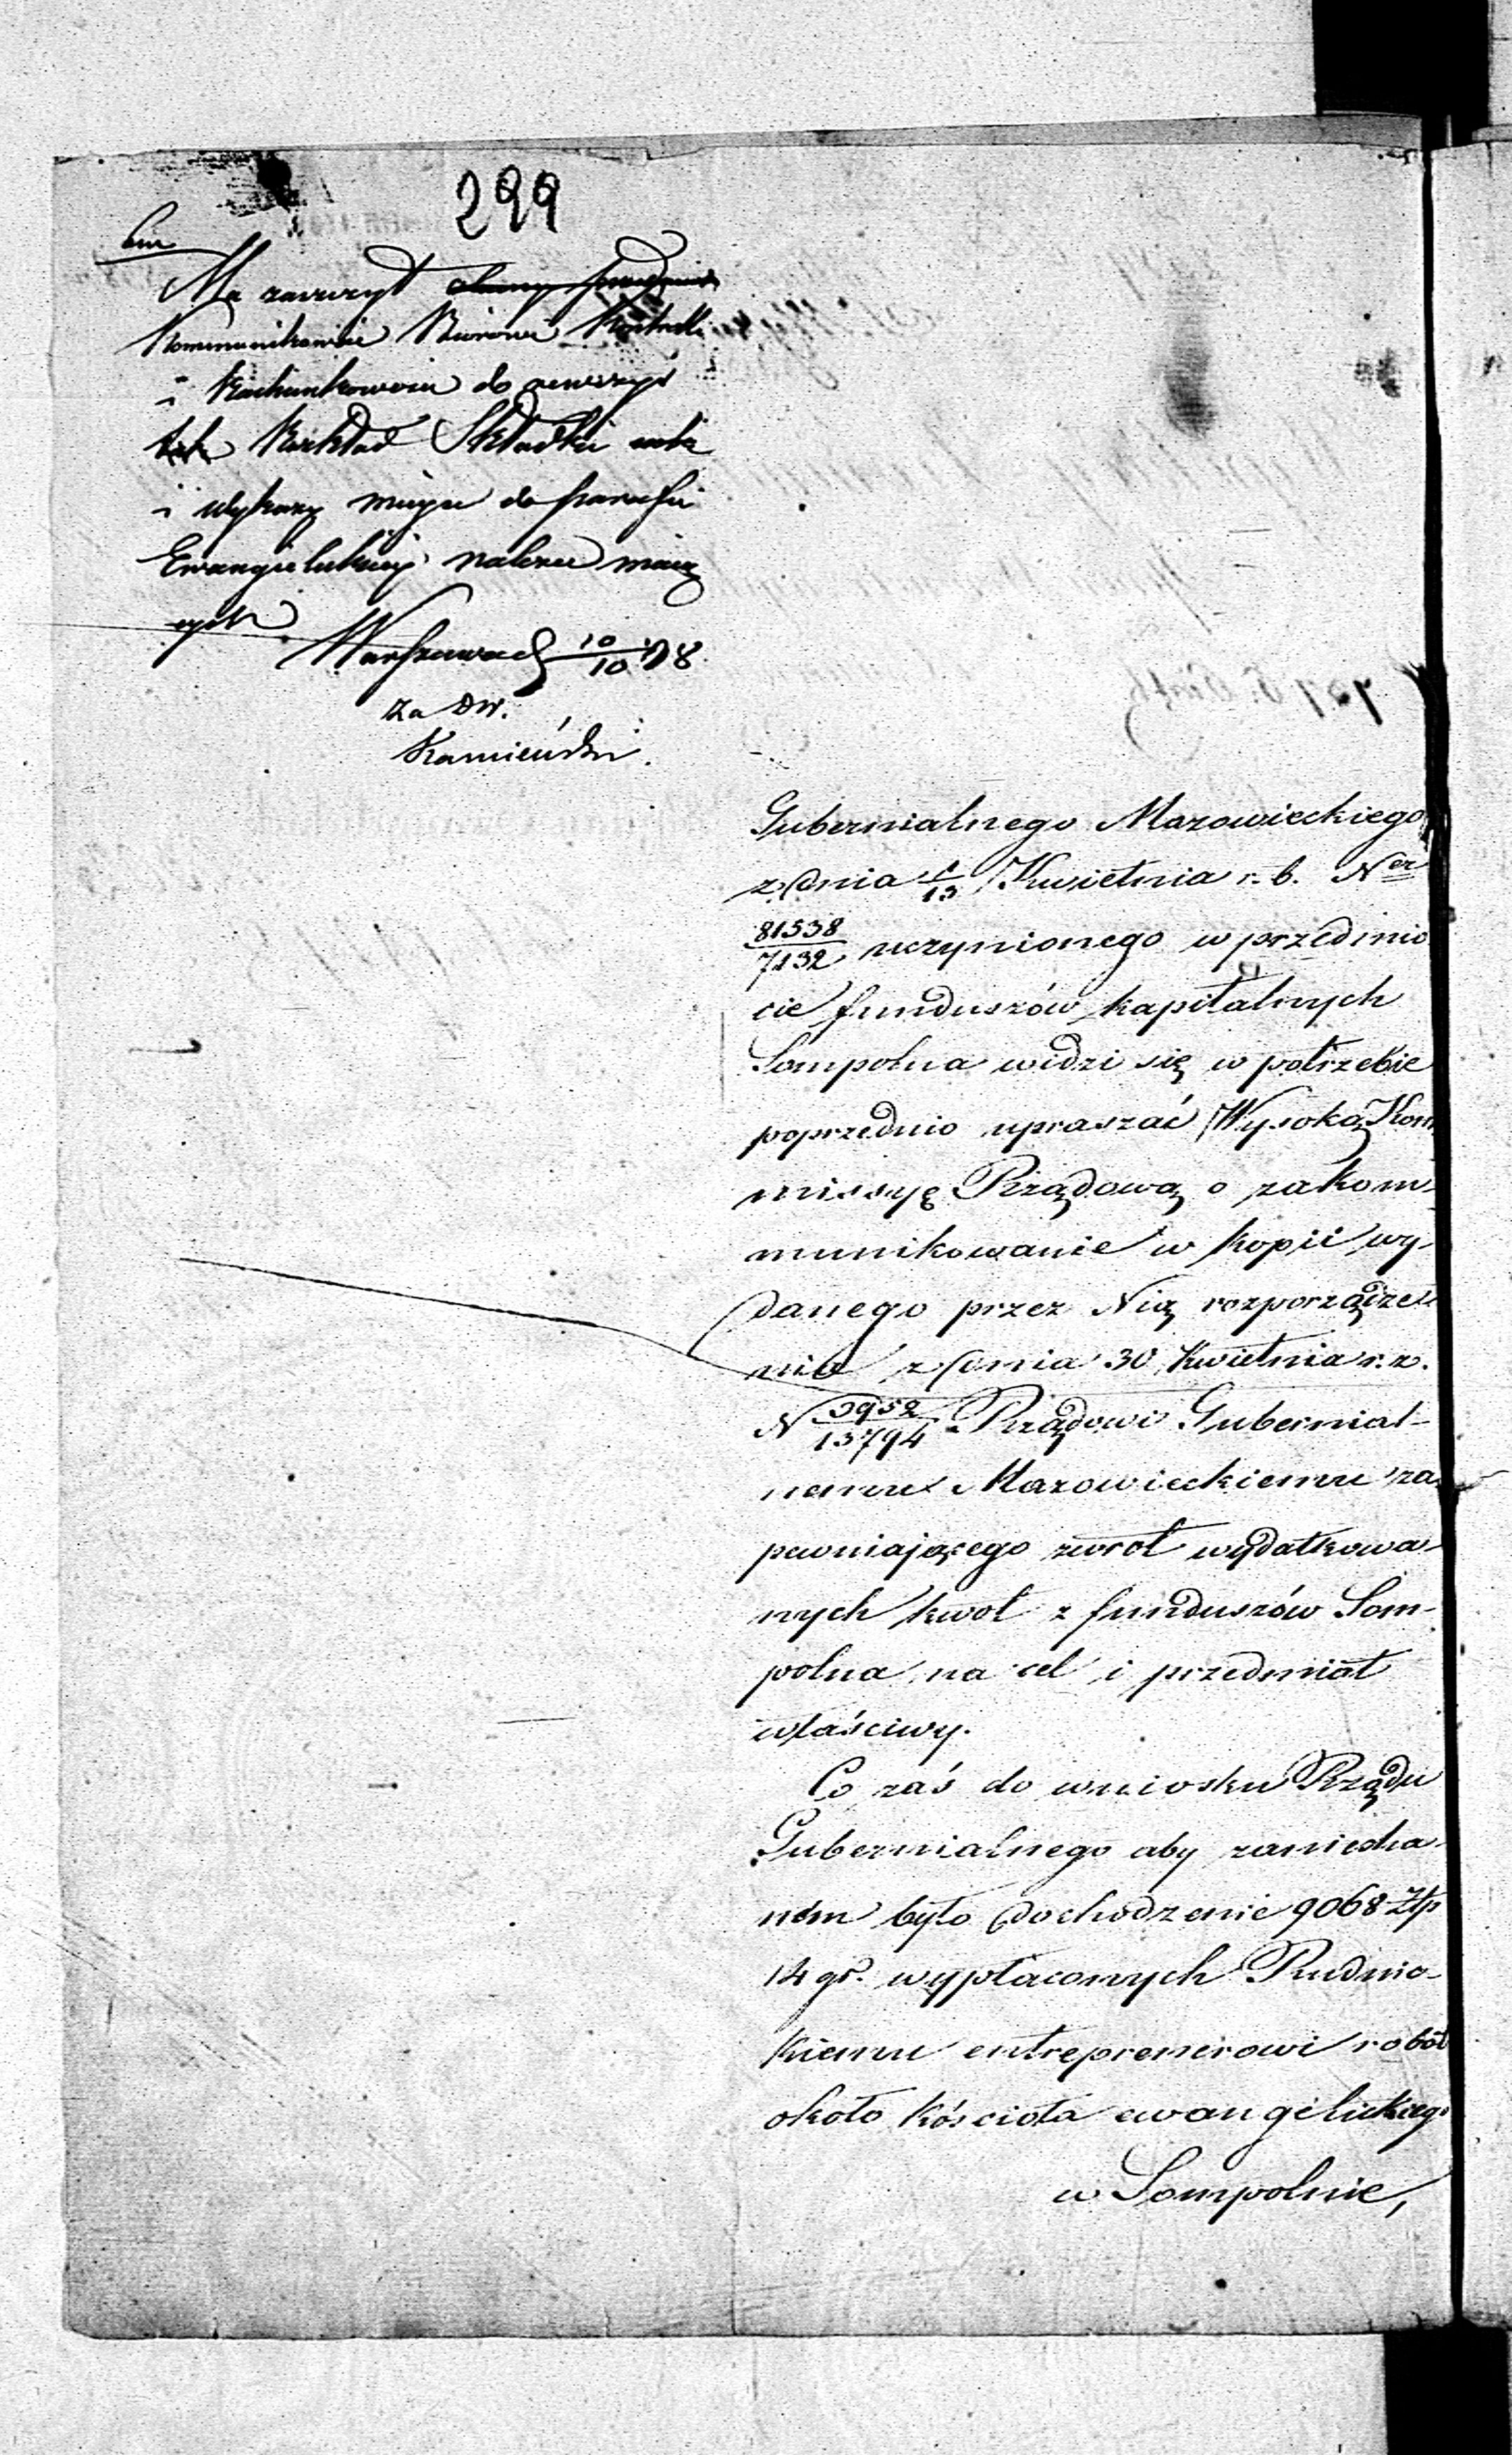 299
Ma zaszczyt
Kommunikować Biurowi Kontrolli
i Rachunkowości do
Rozkład Składki
i wykazy miejsc do parafii
Ewangielickiej należeć mają
cych
Warszawa d 10/10
za Dy.
Kamieński.
Gubernialnego Mazowieckiego
z dnia 1/13 Kwietnia r. b. Ner
81538/7132 uczynionego w przedmio
cie funduszów kapitalnych
Sompolna widzi się w potrzebie
poprzednio upraszać Wysoką Kom
missyę Rządową o zakom-
munikowanie w kopii wy-
danego przez Nią rozporządze-
nia z dnia 30 Kwietnia r. z.
N 3952/13794 Rządowi Gubernial-
nemu Mazowieckiemu za-
pewniającego zwrot wydatkowa-
nych kwot z funduszów Som-
polna na cel i przedmiot
właściwy.
Co zaś do wniosku Rządu
Gubernialnego aby zaniecha-
ném było dochodzenie 9068 Złp
14 gr. wypłaconych Rudnic-
kiemu entreprenerowi robót
około kościoła ewangelickiego
w Sompolnie,